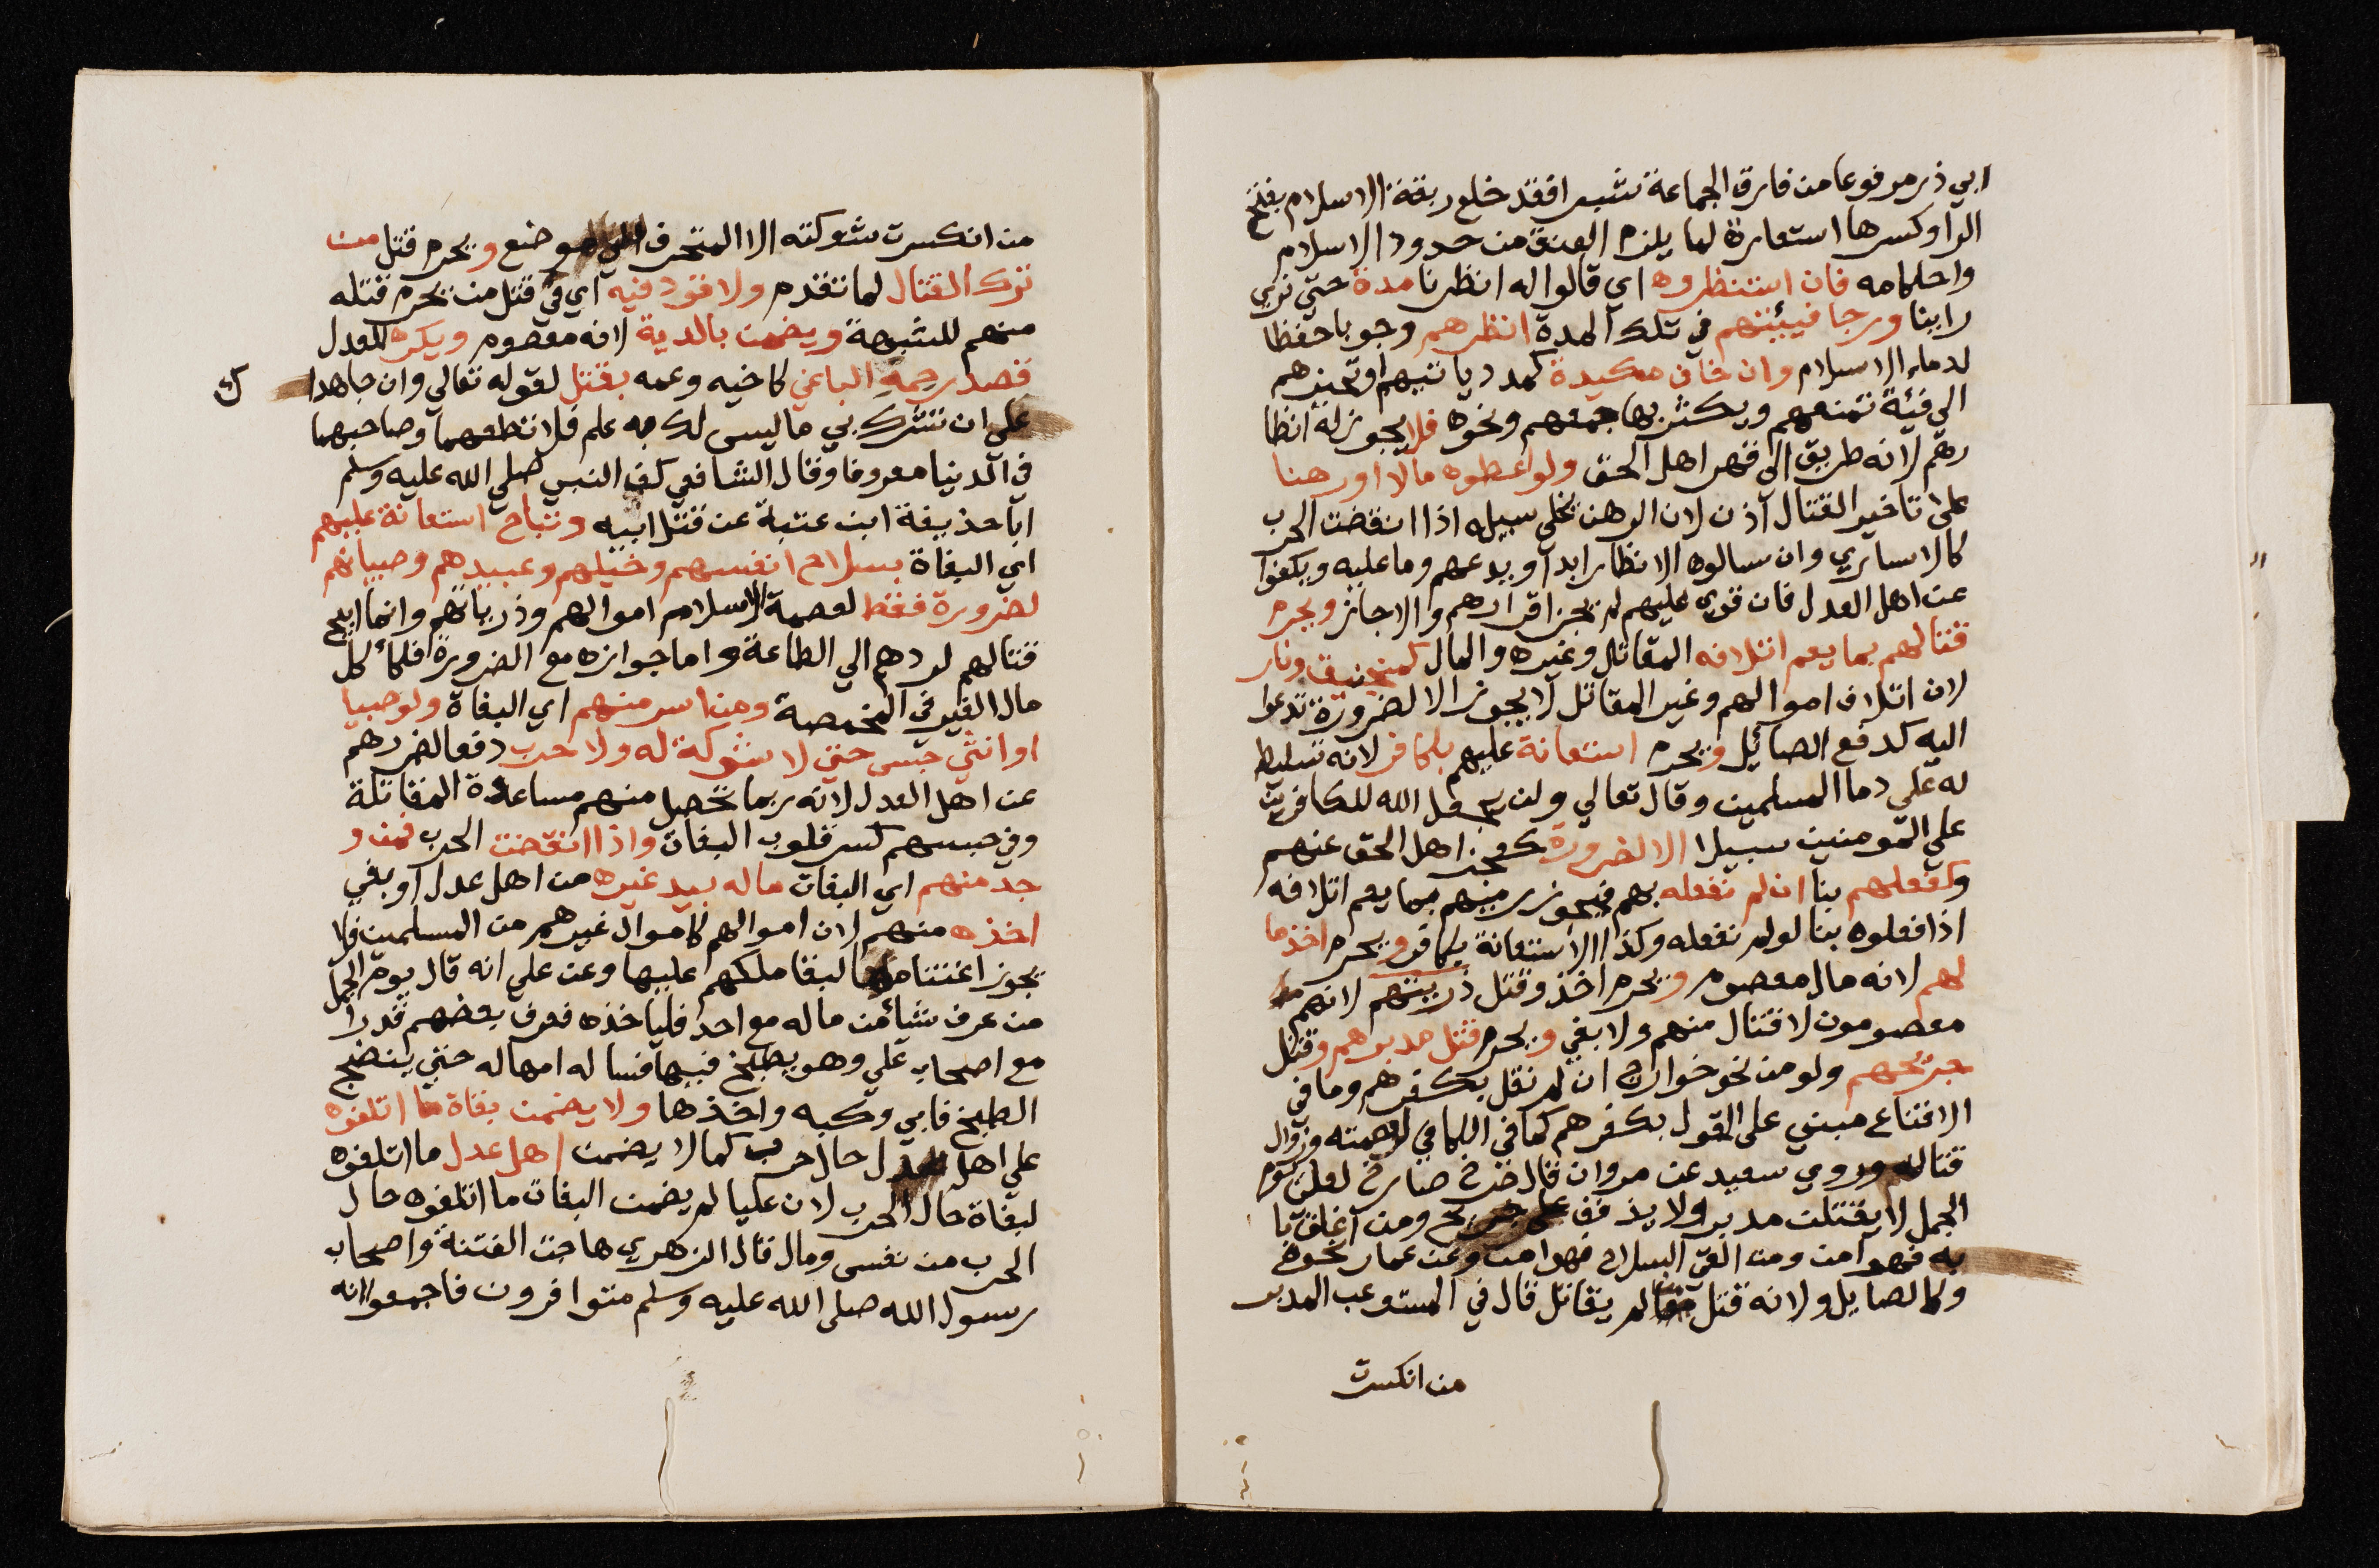 ابي ذر مرفوعا من فارق الجماعة شبرا فقد خلع ربقة الاسلام بفتح
الراوكسرها استعارة لما يلزم العنق من حدود الاسلام
واحكامه فان استنظروه اي قالوا له انظرنا مدة حتي نري
راينا ورجا فيئتهم في تلك المدة انظرهم وجوبا حفظا
لدماء الاسلام وان خاف مكيدة كمدد ياتيهم او تحيزهم
الي فيئة تمنعهم ويكثر بها جمعهم ونحوه فلا يجوز له انظا
رهم لانه طريق الي قهر اهل الحق ولو اعطوه مالا اورهنا
على تاخير القتال اذن لان الرهن يخلي سبيله اذا انقضت الحرب
كالاساري وان سالوه الانظار ابدا ويدعهم وما عليه ويكفوا
عن اهل العدل فان قوي عليهم لم يجز اقرارهم والاجاز ويحرم
قتالهم بما يعم اتلافه المقاتل وغيره والمال كمنجنيق ونار
لان اتلاف اموالهم وغير المقاتل لا يجوز الا لضرورة تدعوا
اليه كدفع الصائيل ويحرم استعانة عليهم بكافر لانه تسليط
له على دما المسلمين وقال تعالي ولن يجعل الله للكافرين
علي المومنين سبيلا الا لضرورة كعجز اهل الحق عنهم
وكفعلهم بنا ان لم نفعله بهم فيجوز رميهم بما يعم اتلافه
اذا فعلوه بنا لولم نفعله وكذا الاستعانة بكافر ويحرم اخذ ما
لهم لانه مال معصوم ويحرم اخذ وقتل ذريتهم لانهم
معصومون لا قتال منهم ولا بغي ويحرم قتل مدبرهم وقتل
جريحهم ولو من نحو خوارج ان لم نقل بكفرهم وما في
الاقناع مبني على القول بكفرهم كما في الكافي لعصمته وزوال
قتاله وروي سعيد عن مروان قال خرج صارخ لعلي يوم
الجمل لا يقتلن مدبر ولا يذفف على جريح ومن اغلق با
به فهو آمن ومن القي السلاح فهو امن وعن عمار نحوه
وكالصايل ولانه قتل من لم يقاتل قال في المستوعب المدبر
من انكسرت
من انكسرت شوكته الا المتحرف الي موضع ويحرم قتل من
ترك القتال لما تقدم ولا قود فيه اي في قتل من يحرم قتله
منهم للشبهة ويضمن بالدية لانه معصوم ويكره للعدل
قصد رحمه الباغي كاخيه وعمه بقتل لقوله تعالي وان جاهدا
ك
علي ان تشرك بي ما ليس لك به علم فلا تطعهما وصاحبهما
في الدنيا معروفا وقال الشافعي كف النبي صلى الله عليه وسلم
ابا حذيفة ابن عتبة عن قتل ابيه وتباح استعانة عليهم
اي البغاة بسلاح انفسهم وخيلهم وعبيدهم وصبيانهم
لضرورة فقط لعصمة الاسلام اموالهم وذرياتهم وانما ابيح
قتالهم لردهم الي الطاعة واما جوازه مع الضرورة فكأكل
مال الغير في المخمصة ومن اسر منهم اي البغاة ولو صبيا
او انثي حبس حتي لا شوكة له ولا حرب دفعا لضررهم
عن اهل العدل لانه ربما تحصل منهم مساعدة المقاتلة
وفي حبسهم كسر قلوب البغات واذا انقضت الحرب فمن و
جد منهم اي البغات ماله بيد غيره من اهل عدل او بغي
اخذه منهم لان اموالهم كاموال غيرهم من المسلمين فلا
يجوز اغتنامها لبقا ملكهم عليها وعن علي انه قال يوم الجمل
من عرف شيأ من ماله مع احد فلياخذه فعرف بعضهم قدرا
مع اصحاب علي وهو يطبخ فيها فساله امهاله حتي ينضج
الطبيخ فابي وكبه واخذها ولا يضمن بغاة ما اتلفوه
علي اهل عدل حال حرب كما لا يضمن اهل عدل ما اتلفوه
لبغاة حال الحرب لان عليا لم يضمن البغات ما اتلفوه حال
الحرب من نفس ومال قال الزهري هاجت الفتنة واصحاب
رسول الله صلى الله عليه وسلم متوافرون فاجمعوا انه